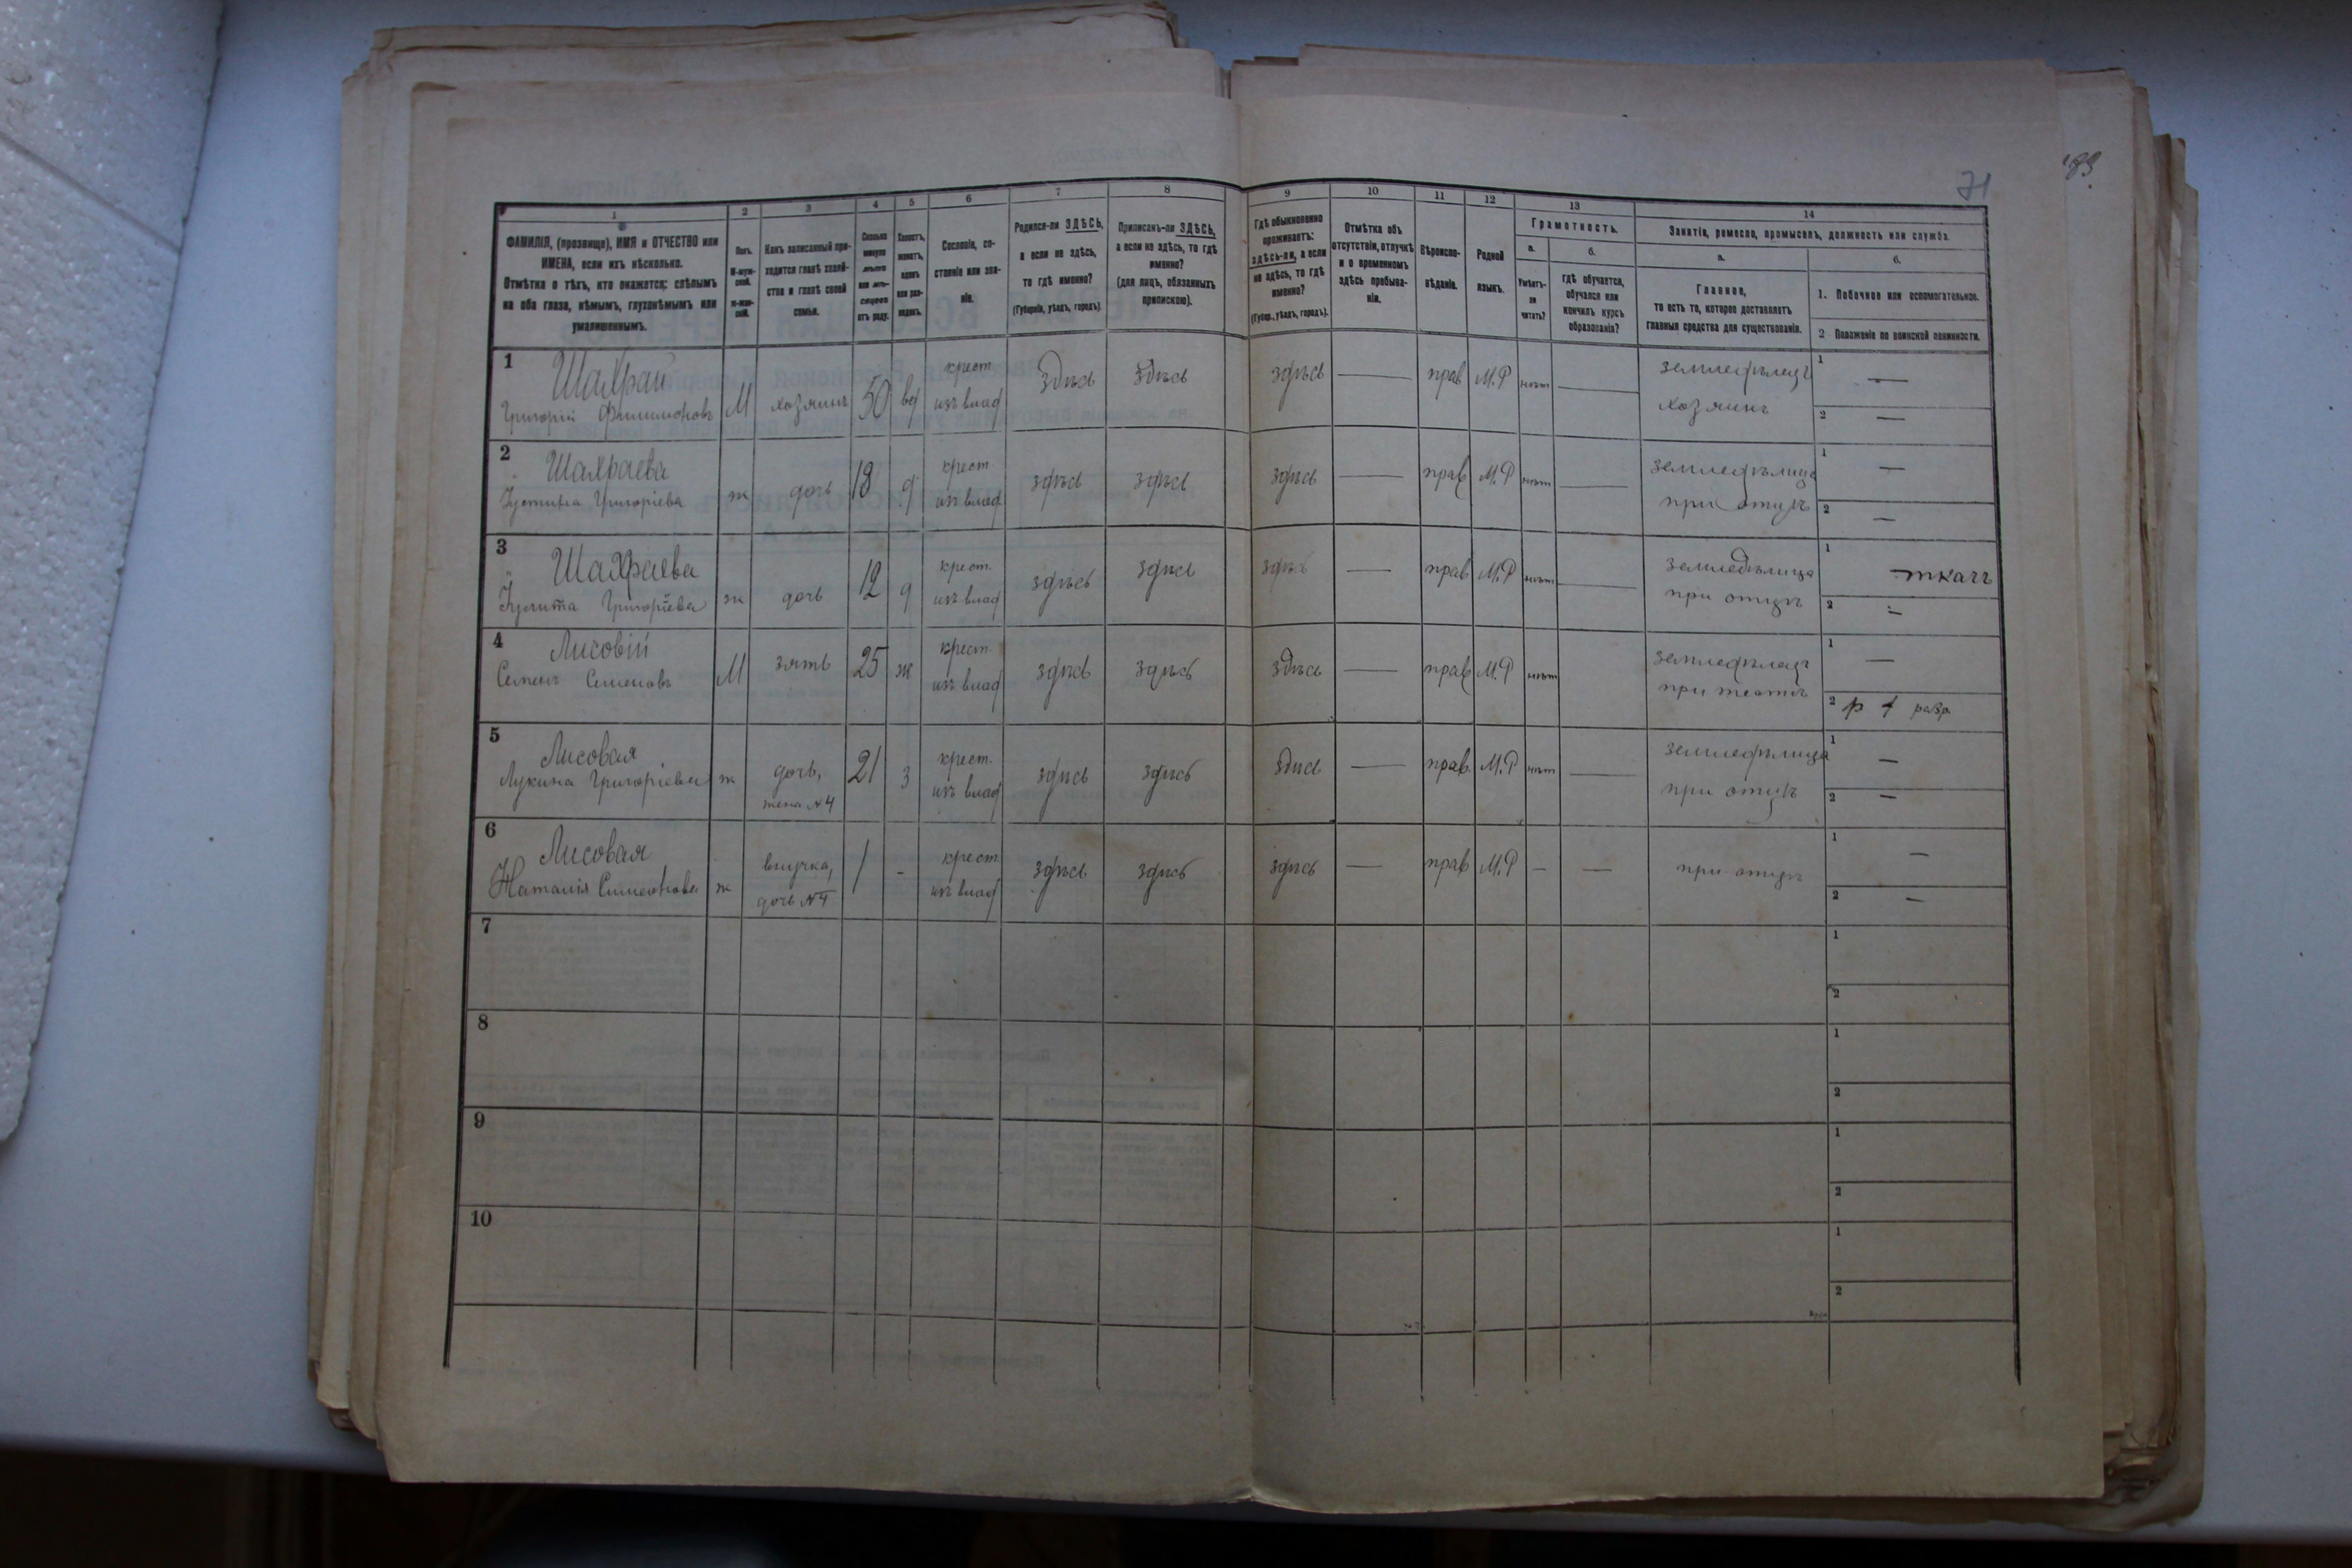 71
83
1 2 3 4 5 6 7 8 9 10 11 12 13 14
ФАМИЛІЯ, (прозвище), ИМЯ и ОТЧЕСТВО или
ИМЕНА, если ихъ нѣсколько.
Отмѣтка о тѣхъ, кто окажется: слѣпымъ
на оба глаза, нѣмымъ, глухонѣмымъ или
умалишеннымъ.
Полъ.
М-муж-
ской.
ж-жен-
скій.
Какъ записанный при-
ходится главѣ хозяй-
ства и главѣ своей
семьи.
Сколько
минуло
лѣтъ
или мѣ-
сяцевъ
отъ роду.
Холостъ,
женатъ,
вдовъ
или раз-
веденъ.
Сословіе, со-
стояніе или зва-
ніе.
Родился-ли ЗДѢСЬ,
а если не здѣсь,
то гдѣ именно?
(Губернія, уѣздъ, городъ).
Приписанъ-ли ЗДѢСЬ,
а если не здѣсь, то гдѣ
именно?
(для лицъ, обязанныхъ
припискою).
Гдѣ обыкновенно
проживаетъ:
здѣсь-ли, а если
не здѣсь, то гдѣ
именно?
(Губер., уѣздъ, городъ).
Отмѣтка объ
отсутствіи, отлучкѣ
и о временномъ
здѣсь пребыва-
ніи.
Вѣроиспо-
вѣданіе.
Родной
языкъ.
Грамотность.
а.
Умѣетъ-
ли
читать?
б.
гдѣ обучается,
обучался или
кончилъ курсъ
образованія?
Занятіе, ремесло, промыселъ, должность или служба.
а.
Главное,
то есть то, которое доставляетъ
главныя средства для существованія.
б.
1. Побочное или вспомогательное.
2 Положеніе по воинской повинности.
1 Шахрай
Григорій Филимоновъ М хозяинъ 50 вд крест. изъ влад здѣсь здѣсь здѣсь — прав М.Р нѣтъ — земледѣлецъ хозяинъ 1 — 2 —
2 Шахраева
Устина Григоріева ж дочь 18 д крест. изъ влад здѣсь здѣсь здѣсь — прав М.Р нѣтъ — земледѣлица при отцѣ 1 — 2 —
3 Шахраева
Григоріева ж дочь 12 д крест. изъ влад здѣсь здѣсь здѣсь — прав М.Р нѣтъ — земледѣлица при отцѣ 1 ткачъ 2 —
4 Лисовій
Семенъ Семеновъ М зять 25 ж крест. изъ влад здѣсь здѣсь здѣсь — прав М.Р нѣтъ земледѣлецъ при тестѣ 1 — 2 р 1 разр
5 Лисовая
Лукина Григоріева ж дочь, жена №4 21 з крест. изъ влад здѣсь здѣсь здѣсь — прав. М.Р нѣтъ — земледѣлица при отцѣ 1 — 2 —
6 Лисовая
Наталія Симеонова ж внучка, дочь №4 1 - крест. изъ влад здѣсь здѣсь здѣсь — прав М.Р — — при отцѣ 1 — 2 —
7 1
2
8 1
2
9 1
2
10 1
2